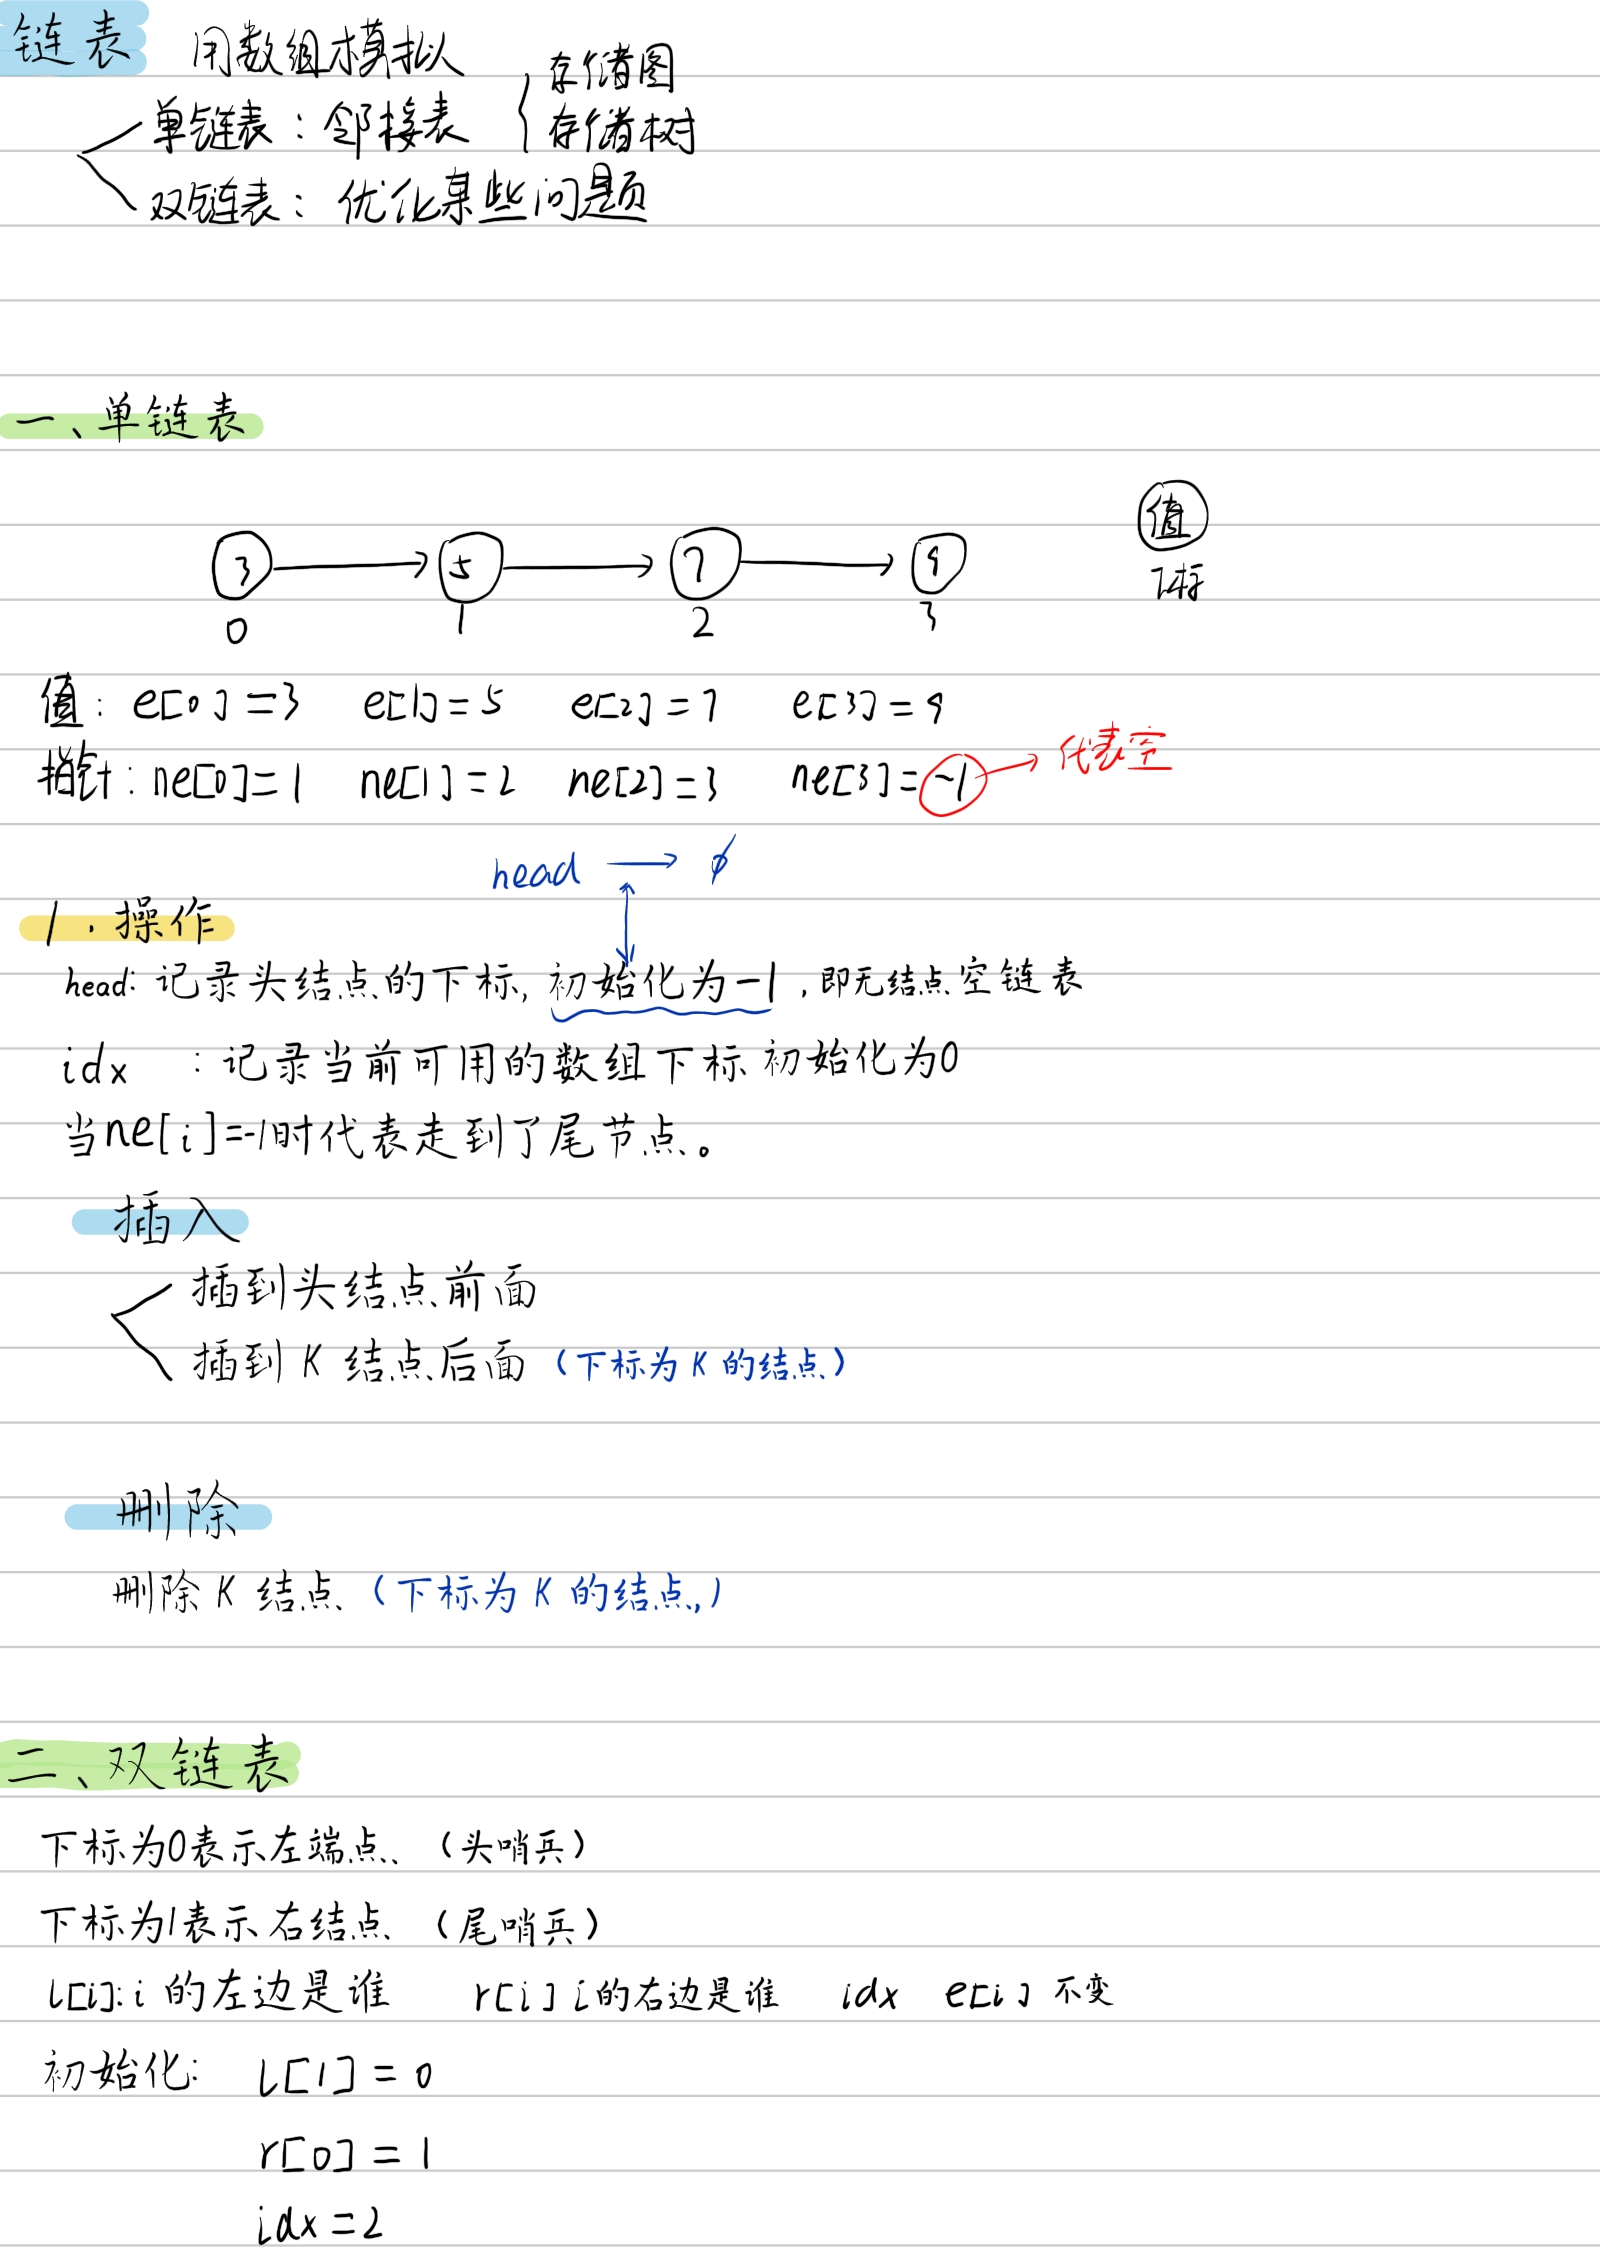 链表 用数组模拟
单链表：邻接表 { 存储图
存储树
双链表：优化某些问题
一、单链表
值
3 → 5 → 7 → 9
下标
0 1 2 3
值：e[0]=3 e[1]=5 e[2]=7 e[3]=9
指针：ne[0]=1 ne[1]=2 ne[2]=3 ne[3]=-1 → 代表空
head → ∅
1.操作
head: 记录头结点的下标, 初始化为-1, 即无结点空链表
idx ：记录当前可用的数组下标 初始化为0
当ne[i]=-1时代表走到了尾节点。
插入
插到头结点前面
插到 K 结点后面（下标为 K 的结点）
删除
删除 K 结点（下标为 K 的结点）
二、双链表
下标为0表示左端点（头哨兵）
下标为1表示右结点（尾哨兵）
l[i]: i 的左边是谁 r[i] i的右边是谁 idx e[i] 不变
初始化: l[1]=0
r[0]=1
idx=2